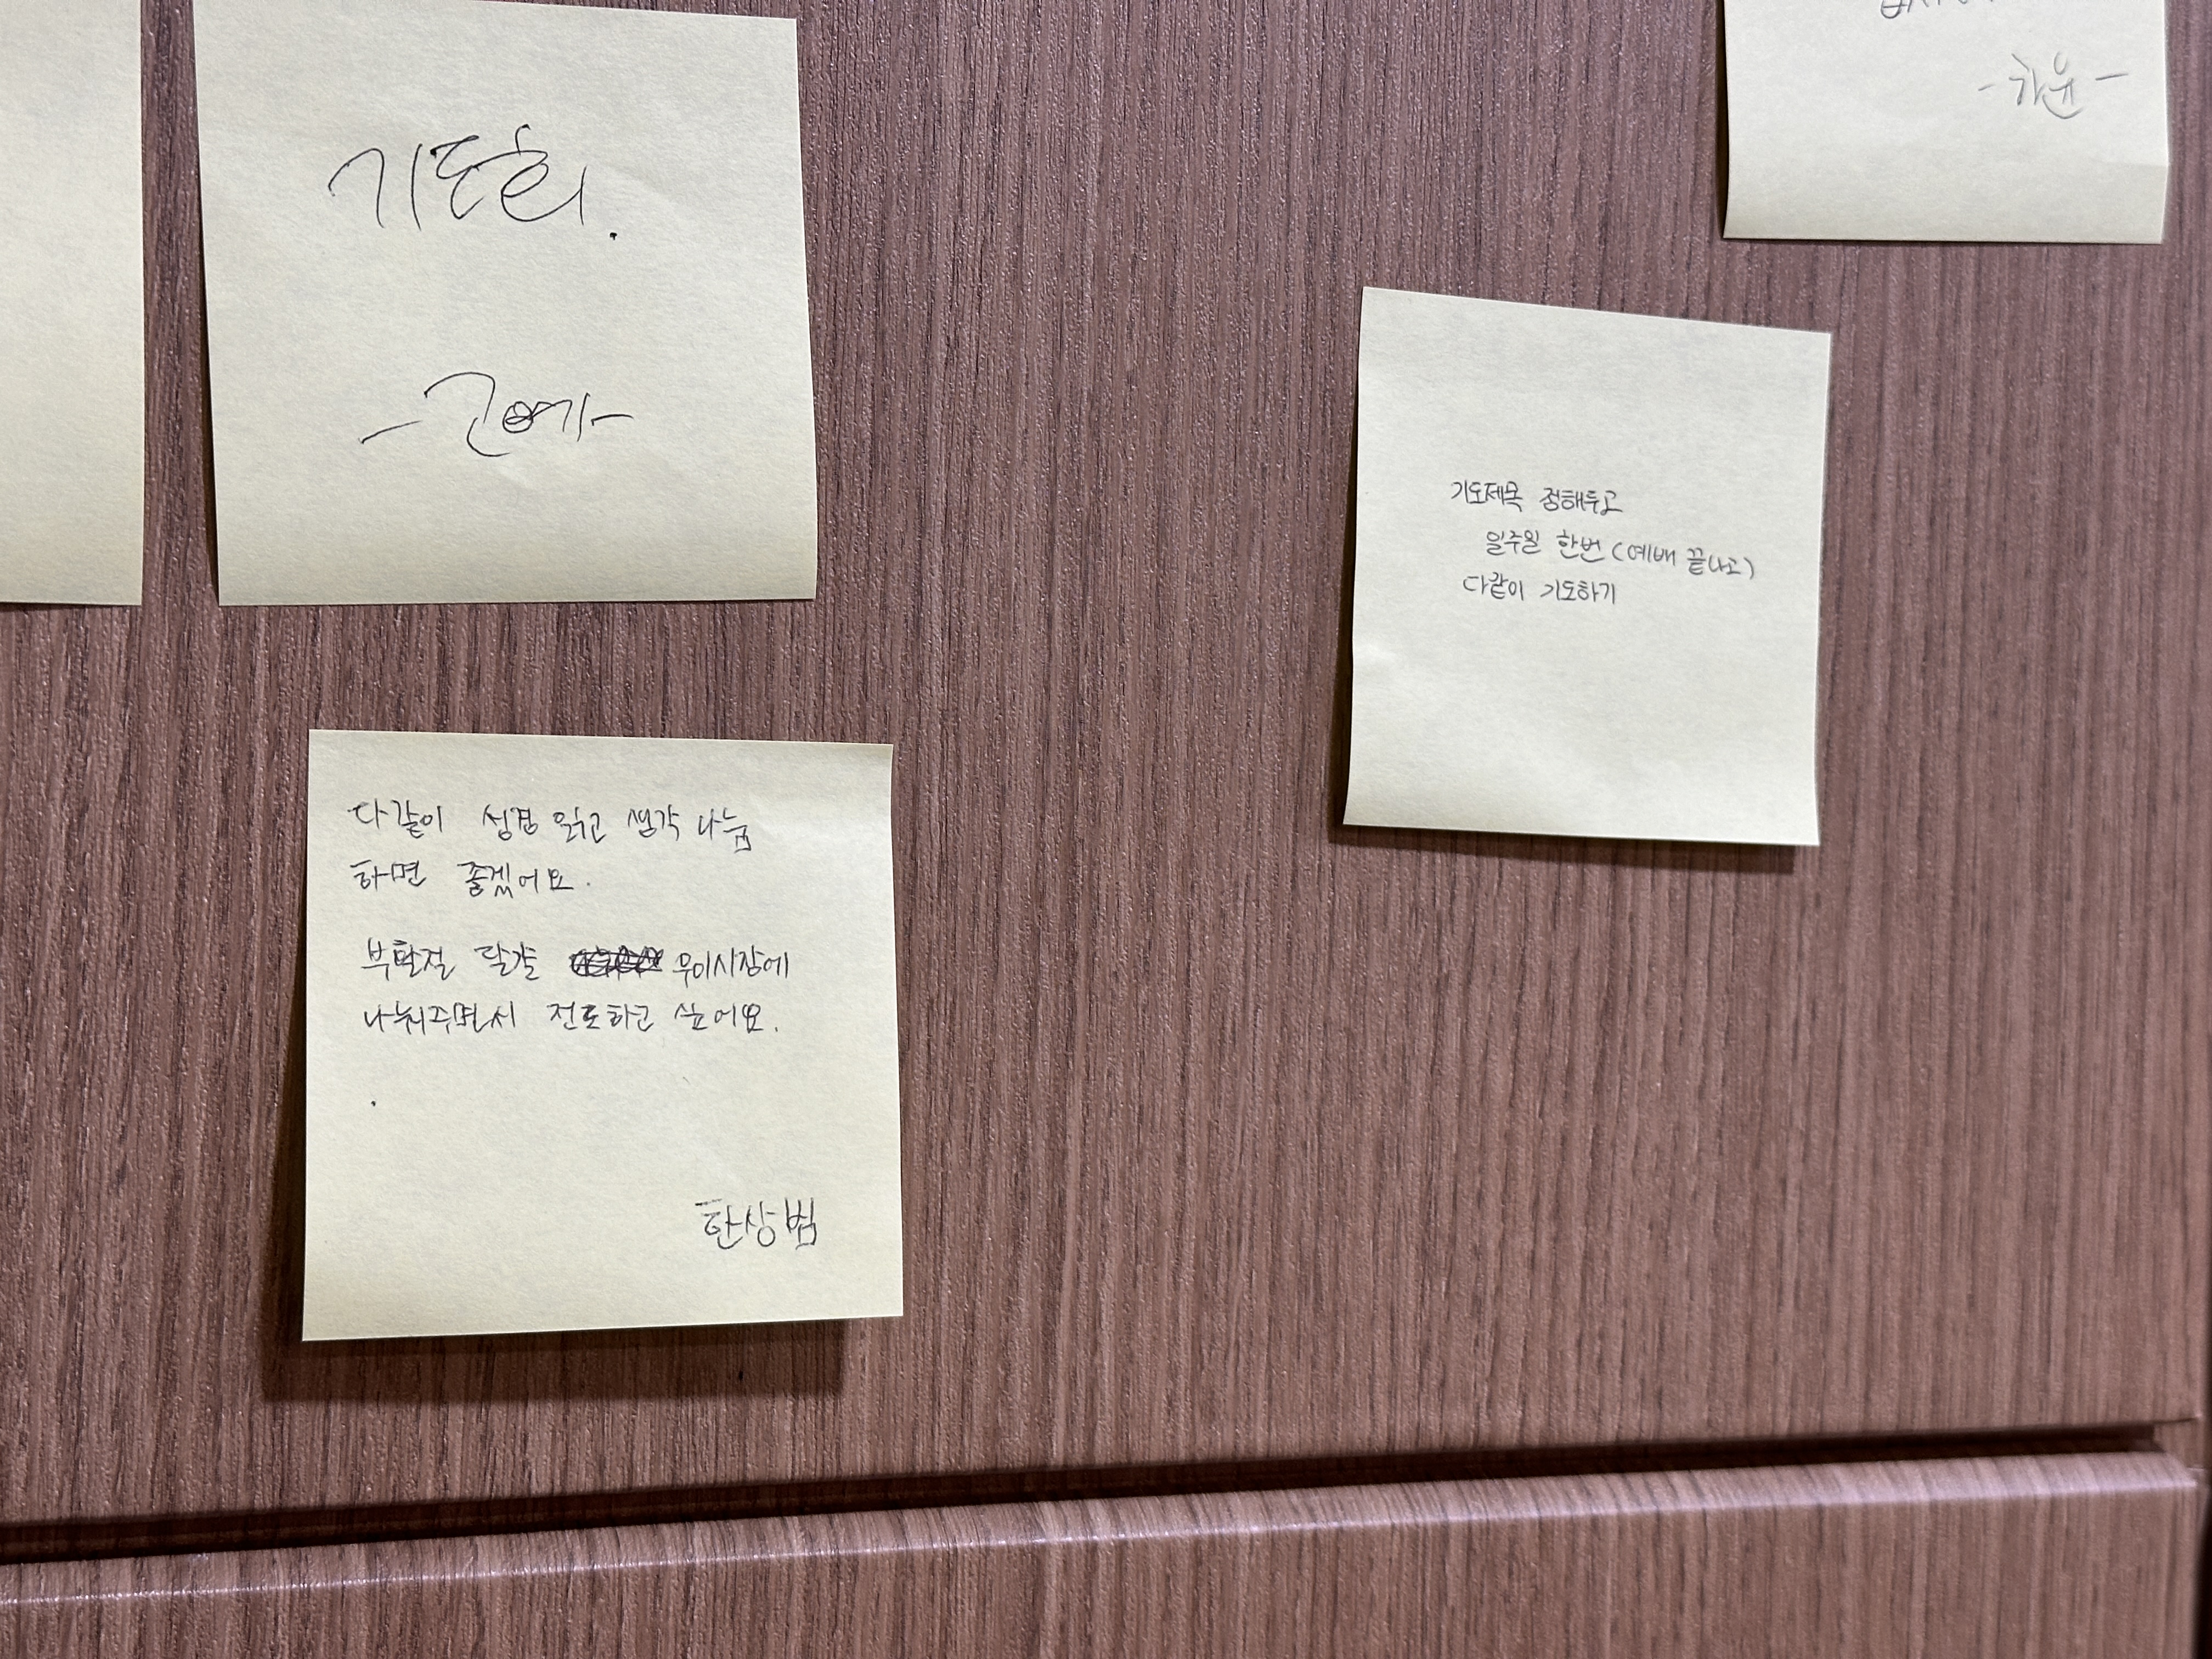 기도회.
-하윤-
기도제목 정해두고
일주일 한번 (예배 끝나고)
다같이 기도하기
다같이 성경 읽고 생각 나눔
하면 좋겠어요.
부활절 달걀 우이시장에
나눠주면서 전도하고 싶어요.
한상범